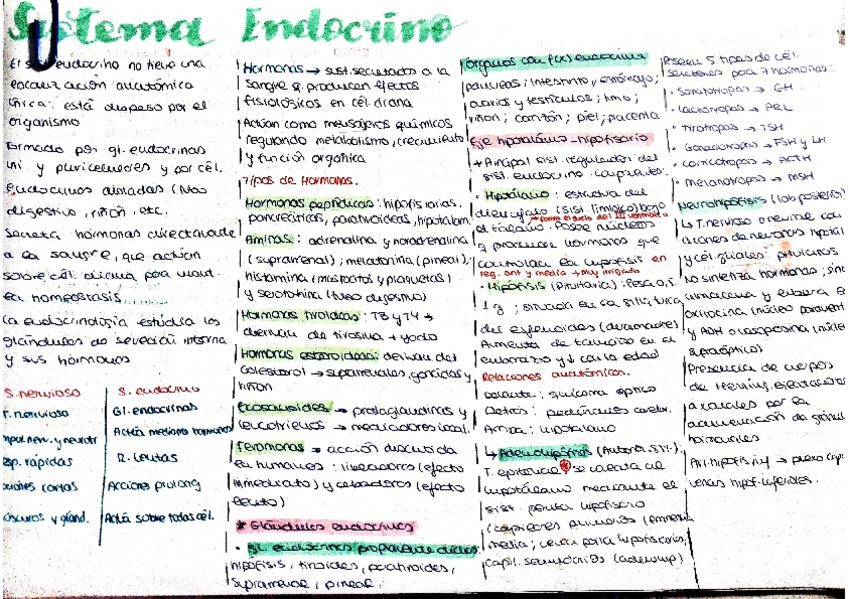 Sistema Endocrino
El sist. endocrino no tiene una
localización anatómica
única: está disperso por el
organismo
Formado por gl. endocrinas
uni y pluricelulares y por cél.
endocrinas aisladas (tubo
digestivo, riñón, etc.
Secreta hormonas directamente
a la sangre, que actúan
sobre cél. diana para mant.
la homeostasis
La endocrinología estudia las
glándulas de secreción interna
y sus hormonas
S. nervioso
S. endocrino
T. nervioso
Gl. endocrinas
Impul. nerv. y neurotr
Actúa mediante hormonas
rápidas
R. lentas
cortas
Acciones prolong
y gland.
Actúa sobre todas cél.
Hormonas → sust. secretadas a la
sangre q. producen efectos
fisiológicos en cél. diana
Actúan como mensajeros químicos
regulando metabolismo, crecimiento
y función orgánica
Tipos de Hormonas.
Hormonas peptídicas: hipofisarias,
pancreáticas, paratiroideas, hipotalam
Aminas: adrenalina y noradrenalina
(suprarrenal); melatonina (pineal);
histamina (mastocitos y plaquetas)
y serotonina (tubo digestivo)
Hormonas tiroideas: T3 y T4 →
derivan de tirosina + yodo
Hormonas esteroideas: derivan del
colesterol → suprarrenales, gónadas y
riñón
Eicosanoides → prostaglandinas y
leucotrienos → mediadores local.
Feromonas → acción discutida
en humanos: liberadores (efecto
inmediato) y cebadores (efecto
lento)
* Glándulas endocrinas
• Gl. endocrinas propiamente dichas:
hipófisis, tiroides, paratiroides,
suprarrenal, pineal.
Órganos con f(x) endocrina
páncreas; intestino y estómago;
ovarios y testículos; timo;
riñón; corazón; piel; placenta
Eje hipotálamo-hipofisario
Principal sist. regulador del
sist. endocrino.
• Hipotálamo: estructura del
diencéfalo (sist. límbico) bajo
el tálamo. Posee núcleos
forma el suelo del III ventrículo
q producen hormonas que
controlan la hipófisis en
reg. ant y media → muy irrigada
• Hipófisis (Pituitaria): pesa 0,5-
1 g; situada en la silla turca
del esfenoides
Aumenta de tamaño en el
embarazo y ↓ con la edad
Relaciones anatómicas.
Delante: quiasma óptico
Detrás: pedúnculos cerebr.
Arriba: hipotálamo
↳ Adenohipófisis
T. epitelial se conecta al
hipotálamo mediante el
sist. porta hipofisario
(capilares primarios
media; venas porta hipofisarias;
capil. secundarios (adenohip)
Poseen 5 tipos de cél.
secretoras para 7 hormonas:
• Somatotropas → GH
• Lactotropas → PRL
• Tirotropas → TSH
• Gonadotropas → FSH y LH
• Corticotropas → ACTH
• Melanotropas → MSH
Neurohipófisis (lob. posterior)
↳ T. nervioso o neural con
axones de neuronas hipotál
y cél. gliales: pituicitos
No sintetiza hormonas; sino
almacena y libera
oxitocina (núcleo paravent
y ADH o vasopresina (núcle
supraóptico)
Presencia de cuerpos
de Herring,
axonales por la
acumulación de gránul
hormonales
Art. hipofis. inf → plexo capi
venas hipof. inferiores.